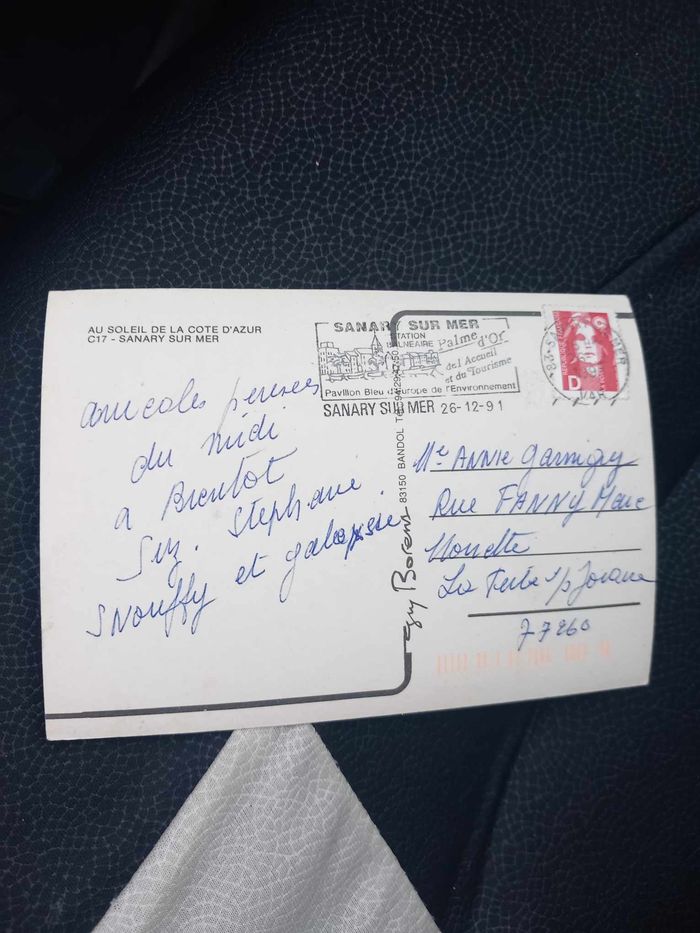 AU SOLEIL DE LA COTE D'AZUR
C17 - SANARY SUR MER
SANARY SUR MER
STATION
BALNEAIRE Palme d'Or
de l'Accueil
et du Tourisme
Pavillon Bleu d'Europe de l'Environnement
SANARY SUR MER 26-12-91
D
VAR
amicales pensées
du midi
a Bientot
Suz. Stephane.
Snouffy et galopsie
83150 BANDOL Tél. 94.29.47.50
Guy Borens
Me ANNIE garnigy
Rue FANNY Marc
La Ferté s/s Jouarre
77260